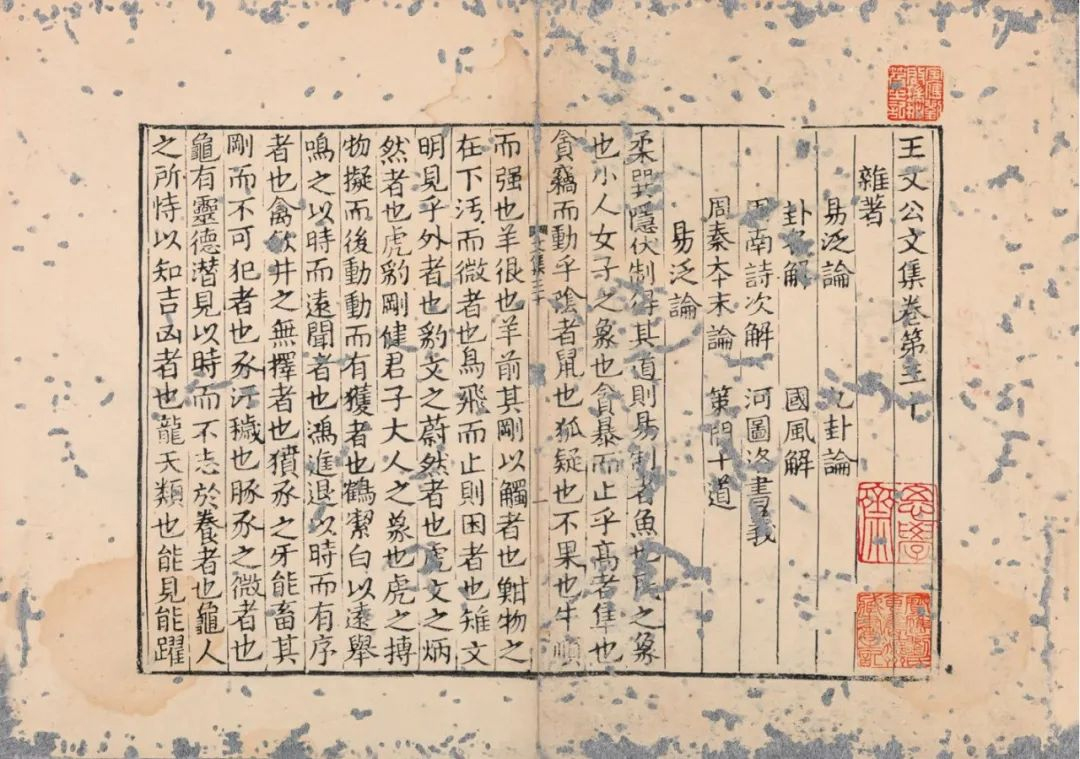 王文公文集卷第三十
雜著
易泛論 九卦論
卦名解 國風解
周南詩次解 河圖洛書義
周秦夲末論 策問十道
易泛論
柔巽隱伏制得其道則易制者魚也民之象
也小人女子之象也貪暴而止乎髙者隼也
貪竊而動乎陰者鼠也狐疑也不果也牛順
文集三十
一
而强也羊很也羊前其剛以觸者也黚物之
在下汚而微者也鳥飛而止則困者也雉文
明見乎外者也豹文之蔚然者也虎文之炳
然者也虎豹剛健君子大人之象也虎之搏
物擬而後動動而有獲者也鶴潔白以遠舉
鳴之以時而遠聞者也鴻進退以時而有序
者也禽飲井之無擇者也豶豕之牙能畜其
剛而不可犯者也豕汙穢也豚豕之微者也
龜有靈德潜見以時而不志於養者也龜人
之所恃以知吉凶者也龍天類也能見能躍